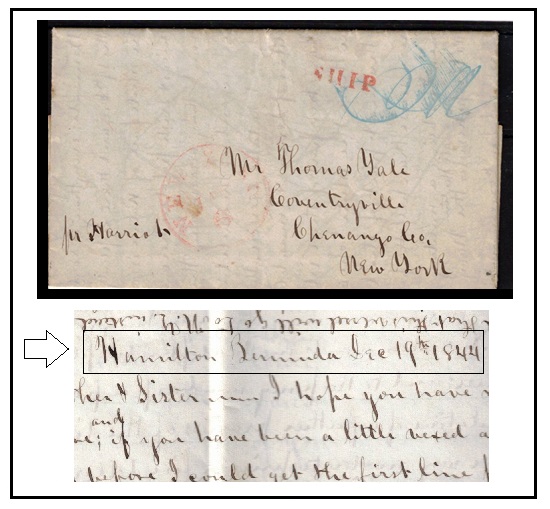 SHIP
Mr Thomas Yale
Coventryville
Chenango Co,
New York
pr Harriot
that this vessel will go to N.Y. instead
Hamilton Bermuda Dec 19th 1844
ther & Sister I hope you have
and
; if you have been a little vexed a
before I could get the first line